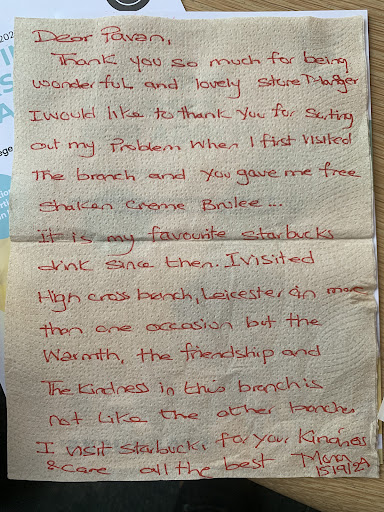 Dear Pavan,
Thank you so much for being
wonderful and lovely store Manger
I would like to thank you for sorting
out my Problem when I first visited
The branch and you gave me free
Shaken Creme Brulee...
it is my favourite starbucks
drink since then. I visited
High cross bench, Leicester on more
than one occasion but the
Warmth, the friendship and
The Kindness in this branch is
not like the other branches
I visit starbucks for your Kindness
& care all the best
15/9/24